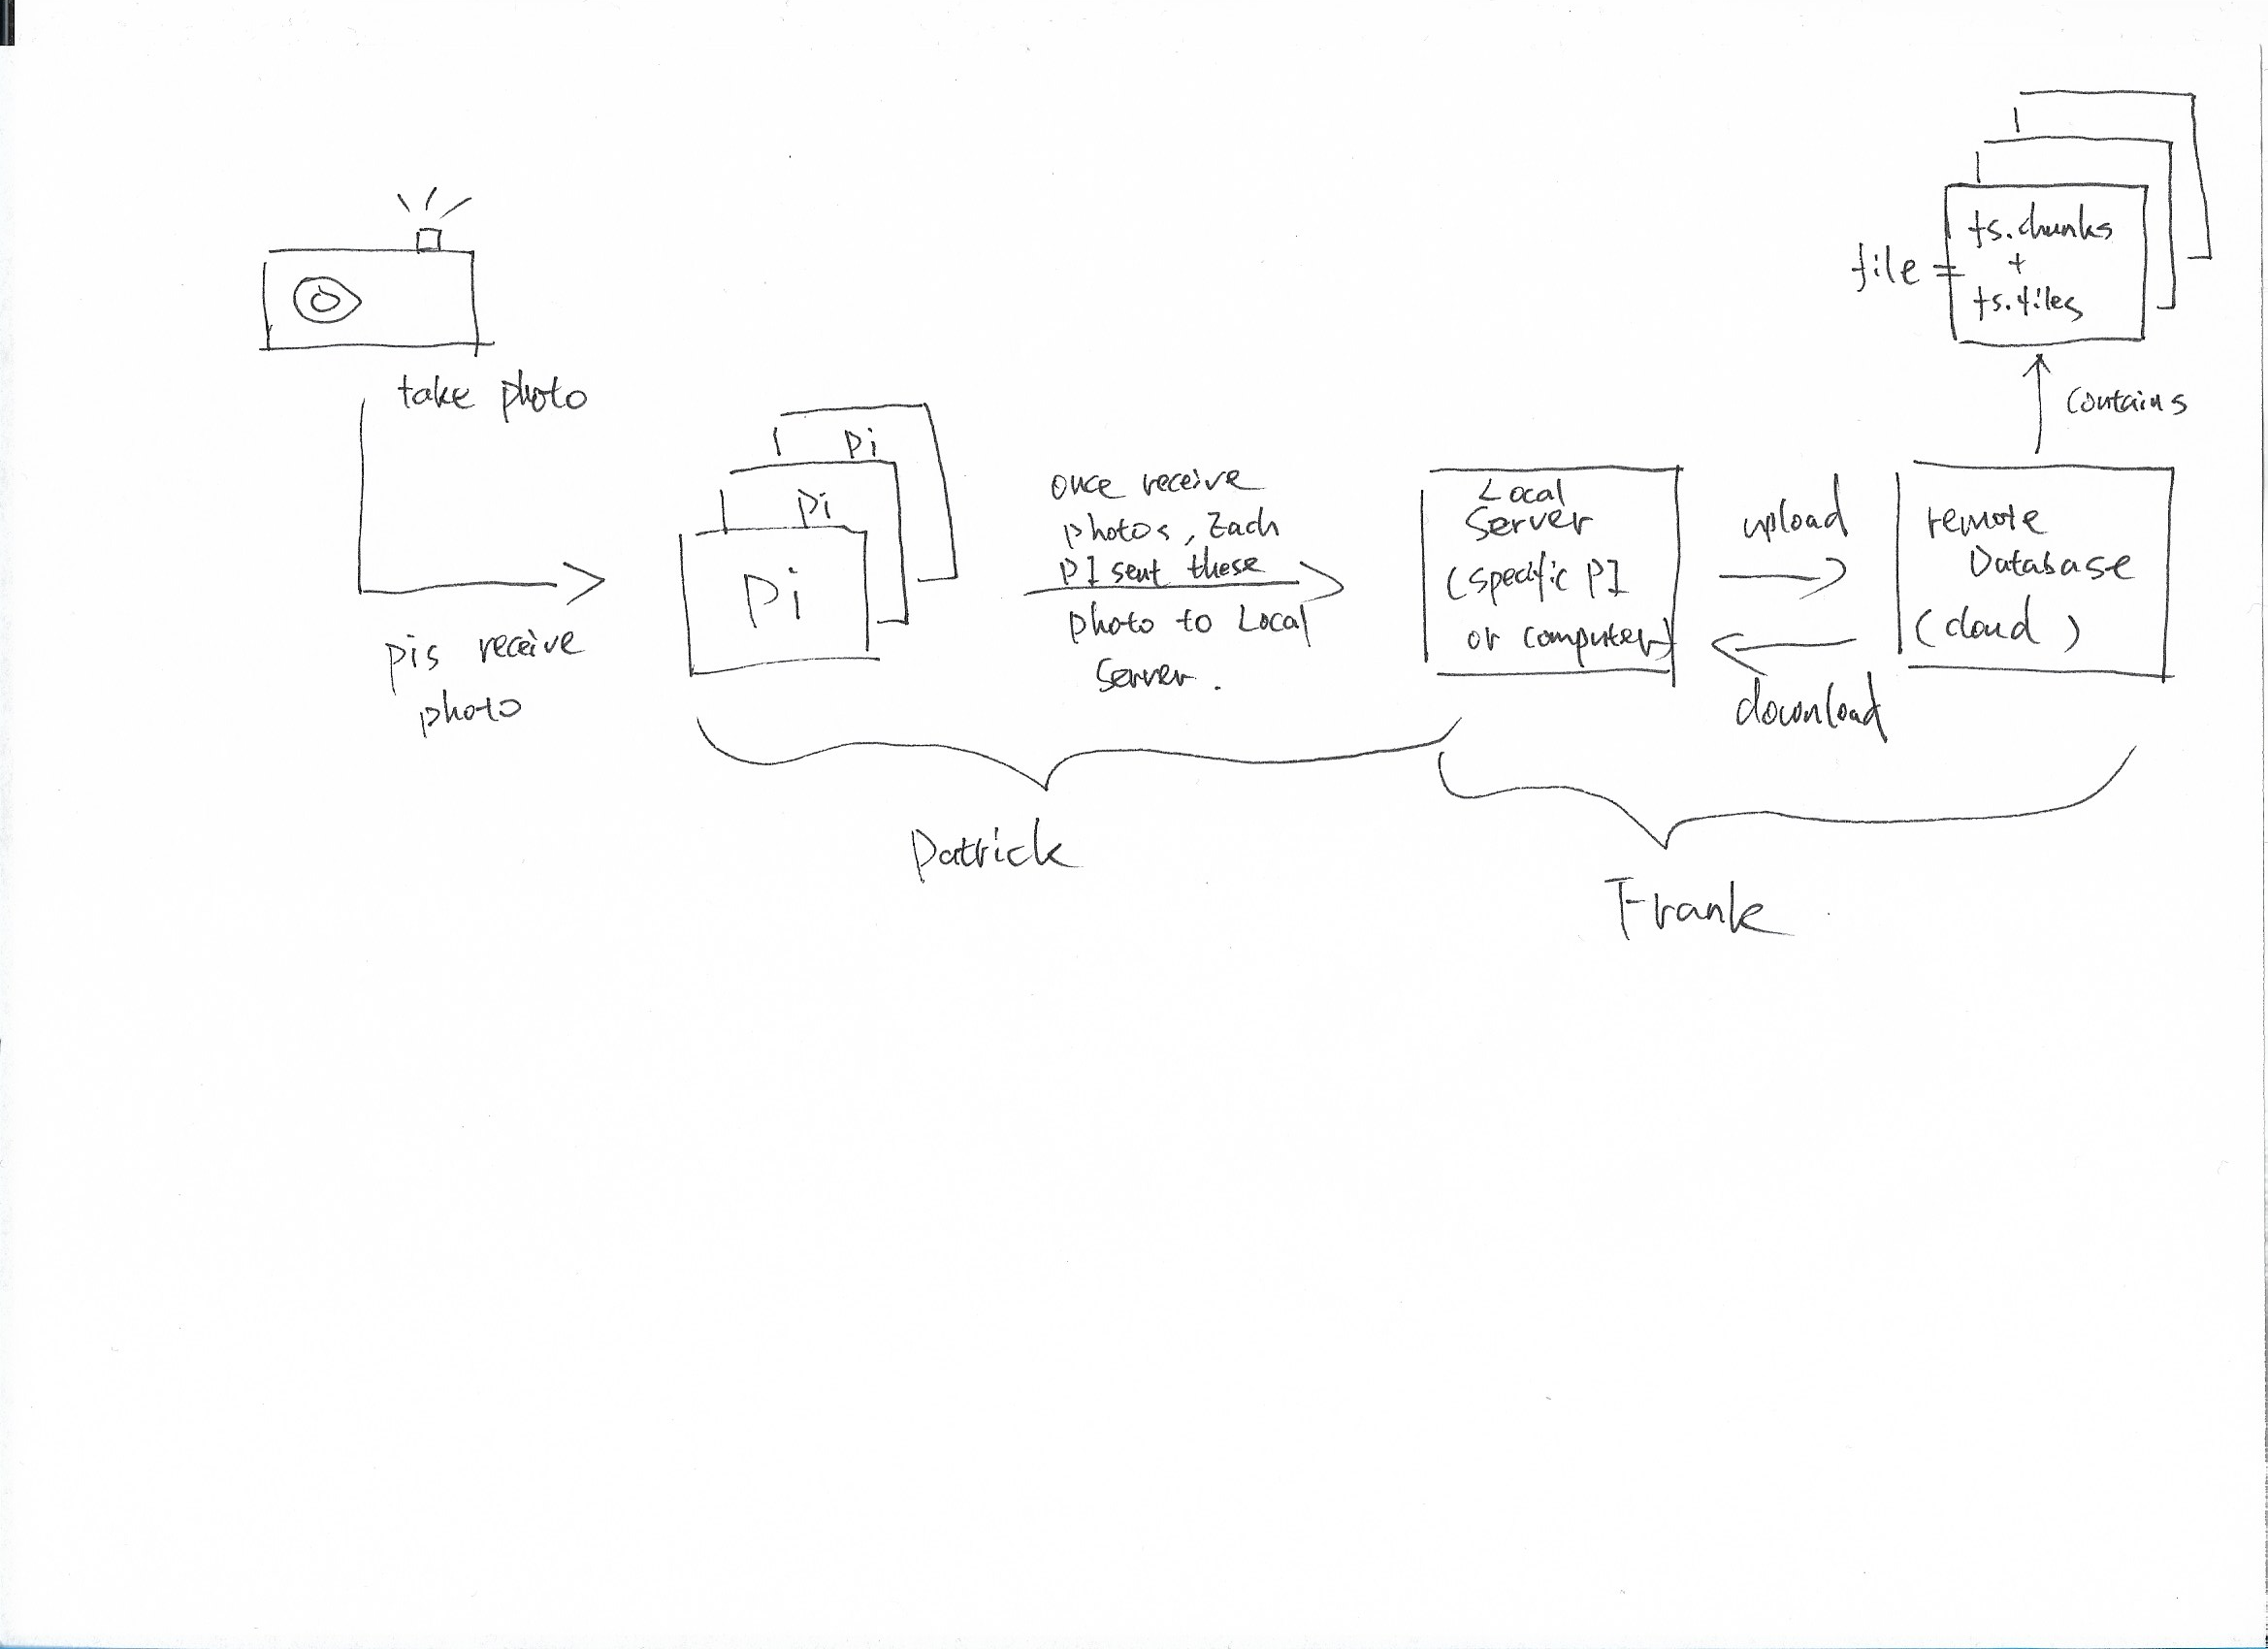 take photo
pis receive
photo
pi
pi
pi
once receive
photos, Each
PI sent these
photo to Local
Server.
Local
Server
(specific PI
or computer)
upload
download
remote
Database
(cloud)
contains
file =
fs.chunks
+
fs.files
Patrick
Frank